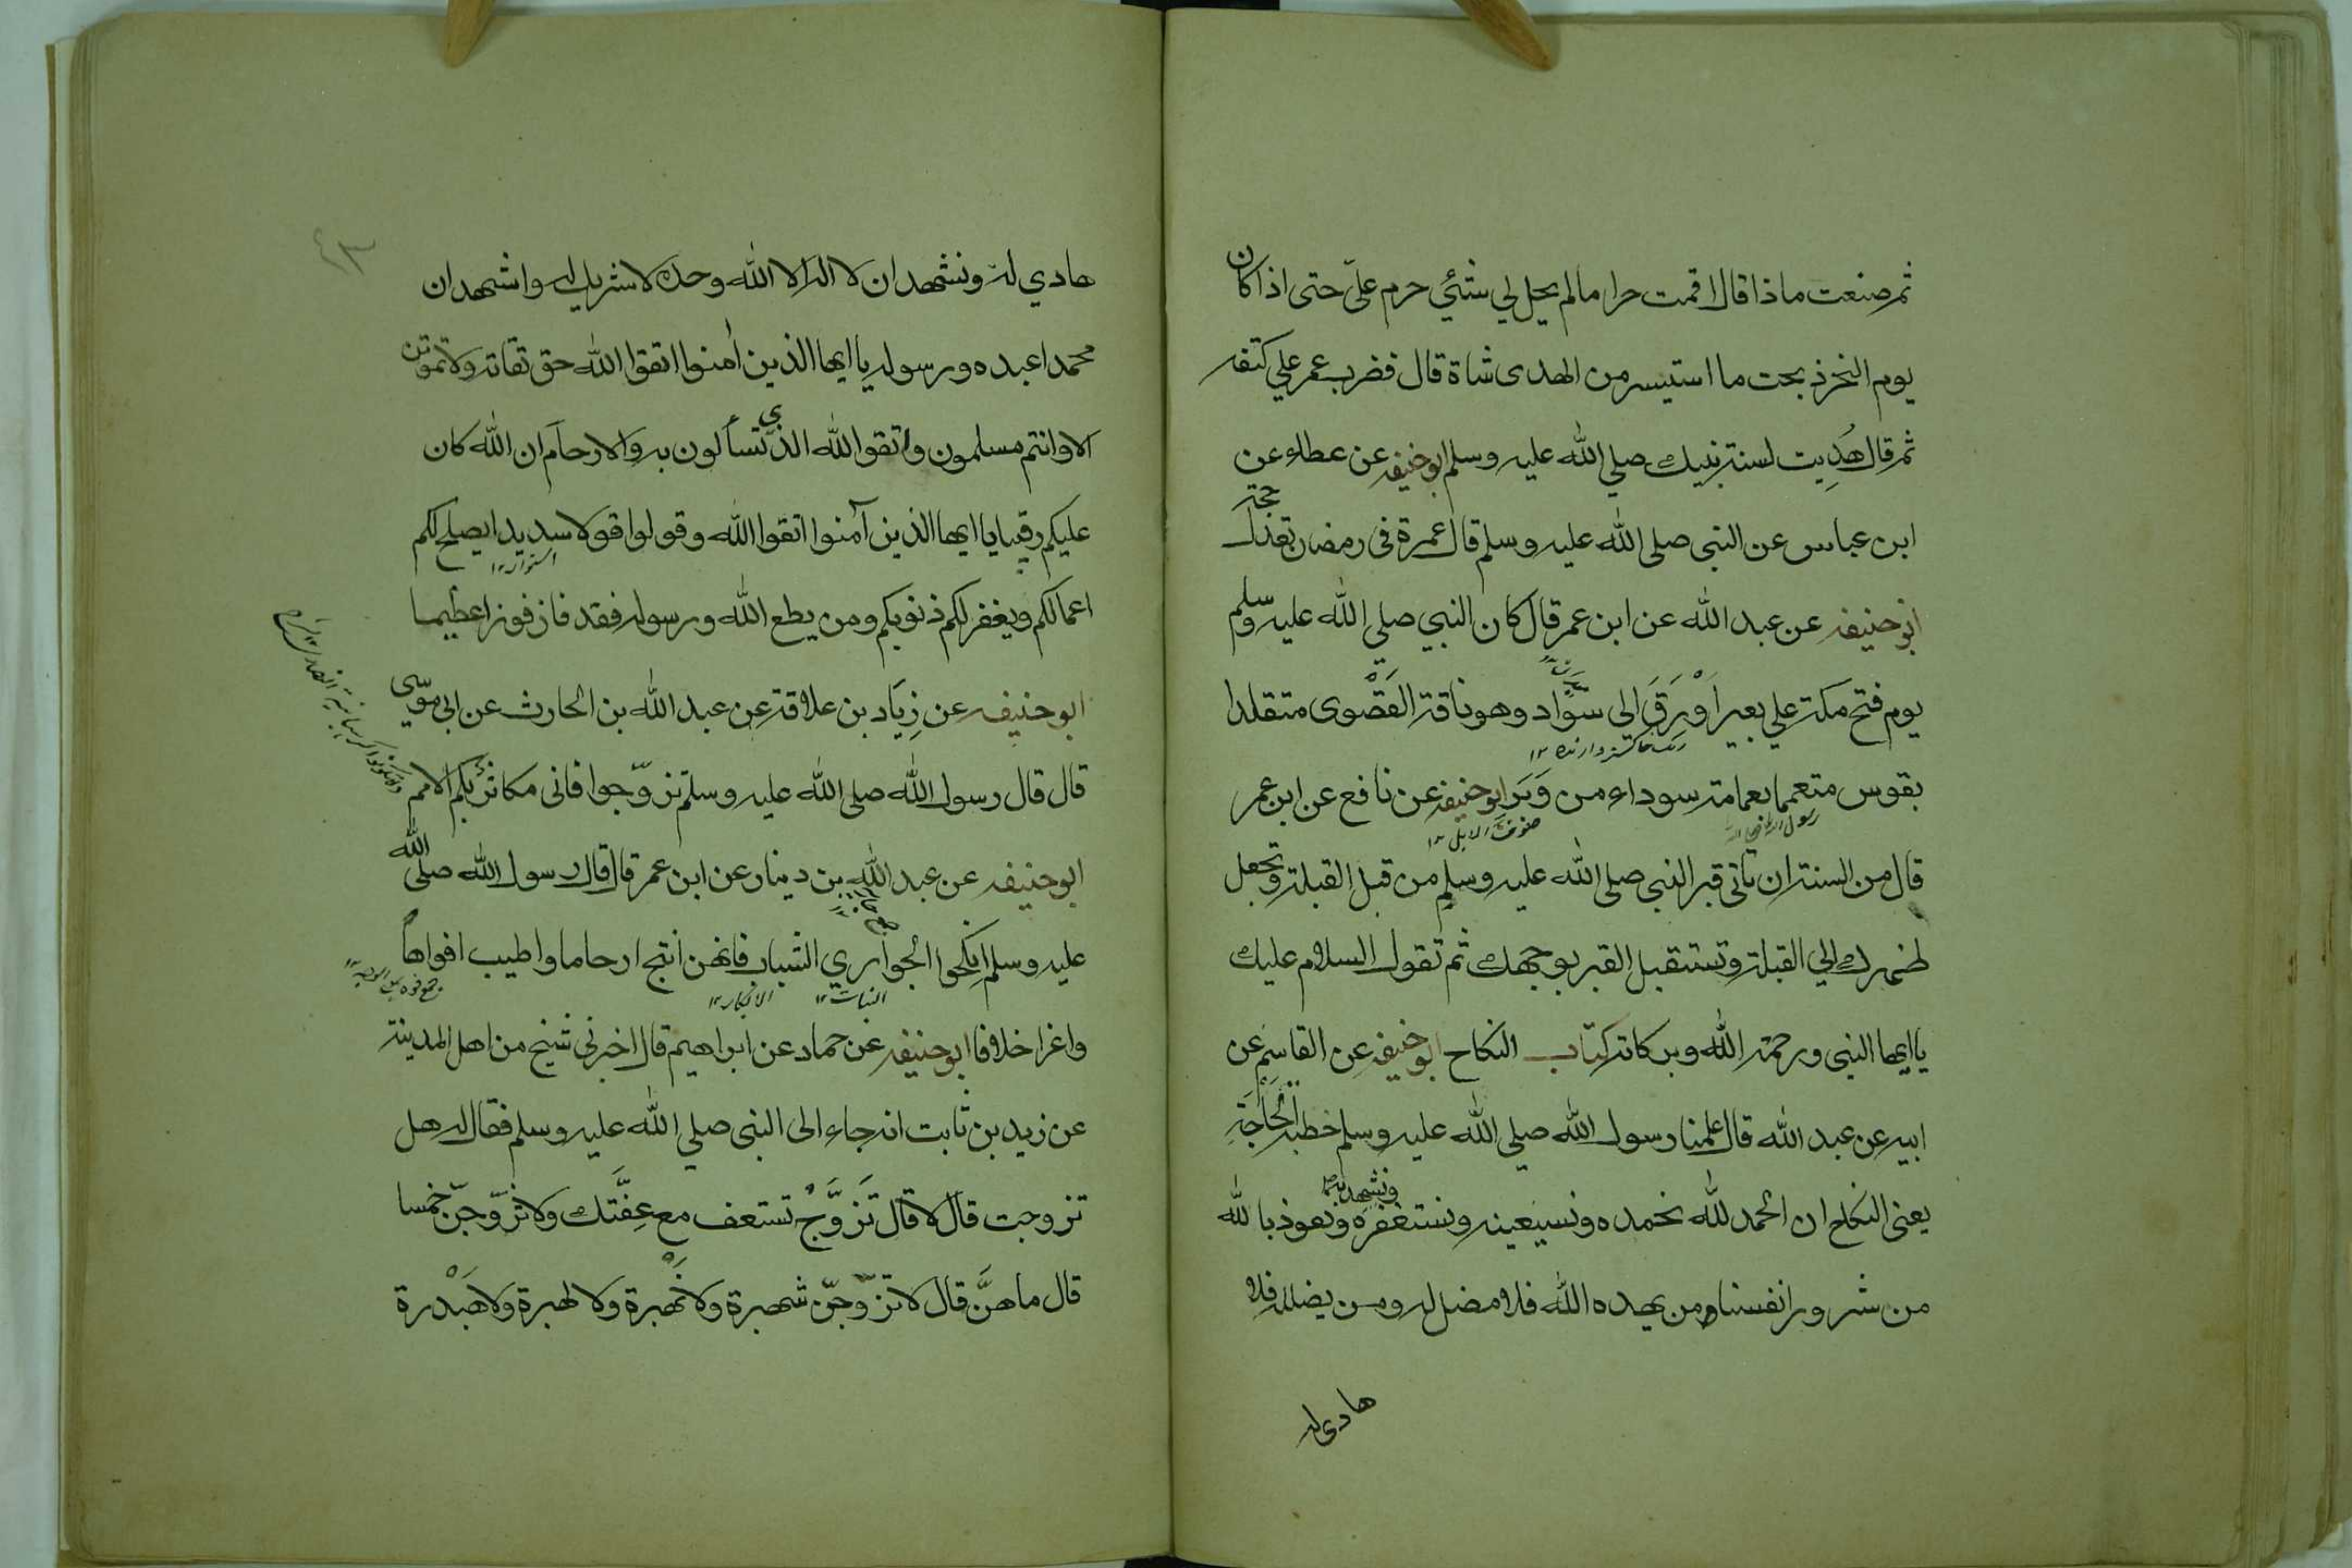 ثم صنعت ماذا قال اقمت حراما لم يحل لي شئي حرم عليّ حتى اذا كان
يوم النحر ذبحت ما استيسر من الهدى شاة قال فضرب عمر علي كتفه
ثم قال هُدِيت لسنة نبيك صلي الله عليه وسلم ابو حنيفه عن عطاء عن
ابن عباس عن النبي صلى الله عليه وسلم قال عمرة فى رمضان تعدل حجة
ابو حنيفه عن عبد الله عن ابن عمر قال كان النبي صلى الله عليه وسلم
يوم فتح مكة علي بعير اَوْرَقَ الى سواد وهو ناقته القَصْوى متقلدا
رنگ خاكستر دارنده ١٢
بقوس متعمما بعمامة سوداء من وَبَر ابو حنيفه عن نافع عن ابن عمر
صوف الابل ١٢
قال من السنة ان تاتى قبر النبي صلى الله عليه وسلم من قبل القبلة وتجعل
ظهرك الي القبلة وتستقبل القبر بوجهك ثم تقول السلام عليك
يا ايها النبى ورحمة الله وبركاته كتاب النكاح ابو حنيفه عن القاسم عن
ابيه عن عبد الله قال علمنا رسول الله صلى الله عليه وسلم خطبة الحَاجَةِ
يعنى النكاح ان الحمد لله نحمده ونستعينه ونستغفره ونعوذ بالله
من شرور انفسنا من يهده الله فلا مضل له ومن يضلله فلا
هادى له
٤٣
هادي له ونشهد ان لا اله الا الله وحده لا شريك له واشهد ان
محمدا عبده ورسوله يا ايها الذين اٰمنوا اتقوا الله حق تقاته ولا تموتن
الا وانتم مسلمون واتقوا الله الذي تسألون به والارحام ان الله كان
عليكم رقيبا يا ايها الذين آمنوا اتقوا الله وقولوا قولا سديدا يصلح لكم
استوار ١٢
اعمالكم ويغفر لكم ذنوبكم ومن يطع الله ورسوله فقد فاز فوزا عظيما
ابو حنيفه عن زِيَاد بن علاقة عن عبد الله بن الحارث عن ابى موسى
قال قال رسول الله صلى الله عليه وسلم تزوّجوا فانى مكاثر بكم الامم
ابو حنيفه عن عبد الله بن دينار عن ابن عمر قال قال رسول الله صلى الله
عليه وسلم انكحوا الجواري الشباب فانهن انتج ارحاما واطيب افواهاً
البنات ١٢ الابكار ١٢
واغرا خلاقا ابو حنيفه عن حماد عن ابراهيم قال اخبرنى شيخ من اهل المدينة
عن زيد بن ثابت انه جاء الى النبى صلي الله عليه وسلم فقال له هل
تزوجت قال لا قال تَزَوَّجْ تستعف مع عِفَّتك ولا تزوّجنّ خمسا
قال ما هنَّ قال لا تزوّجنّ شهبرة ولا نَهْبرة ولا لهبرة ولا هَبْدرة